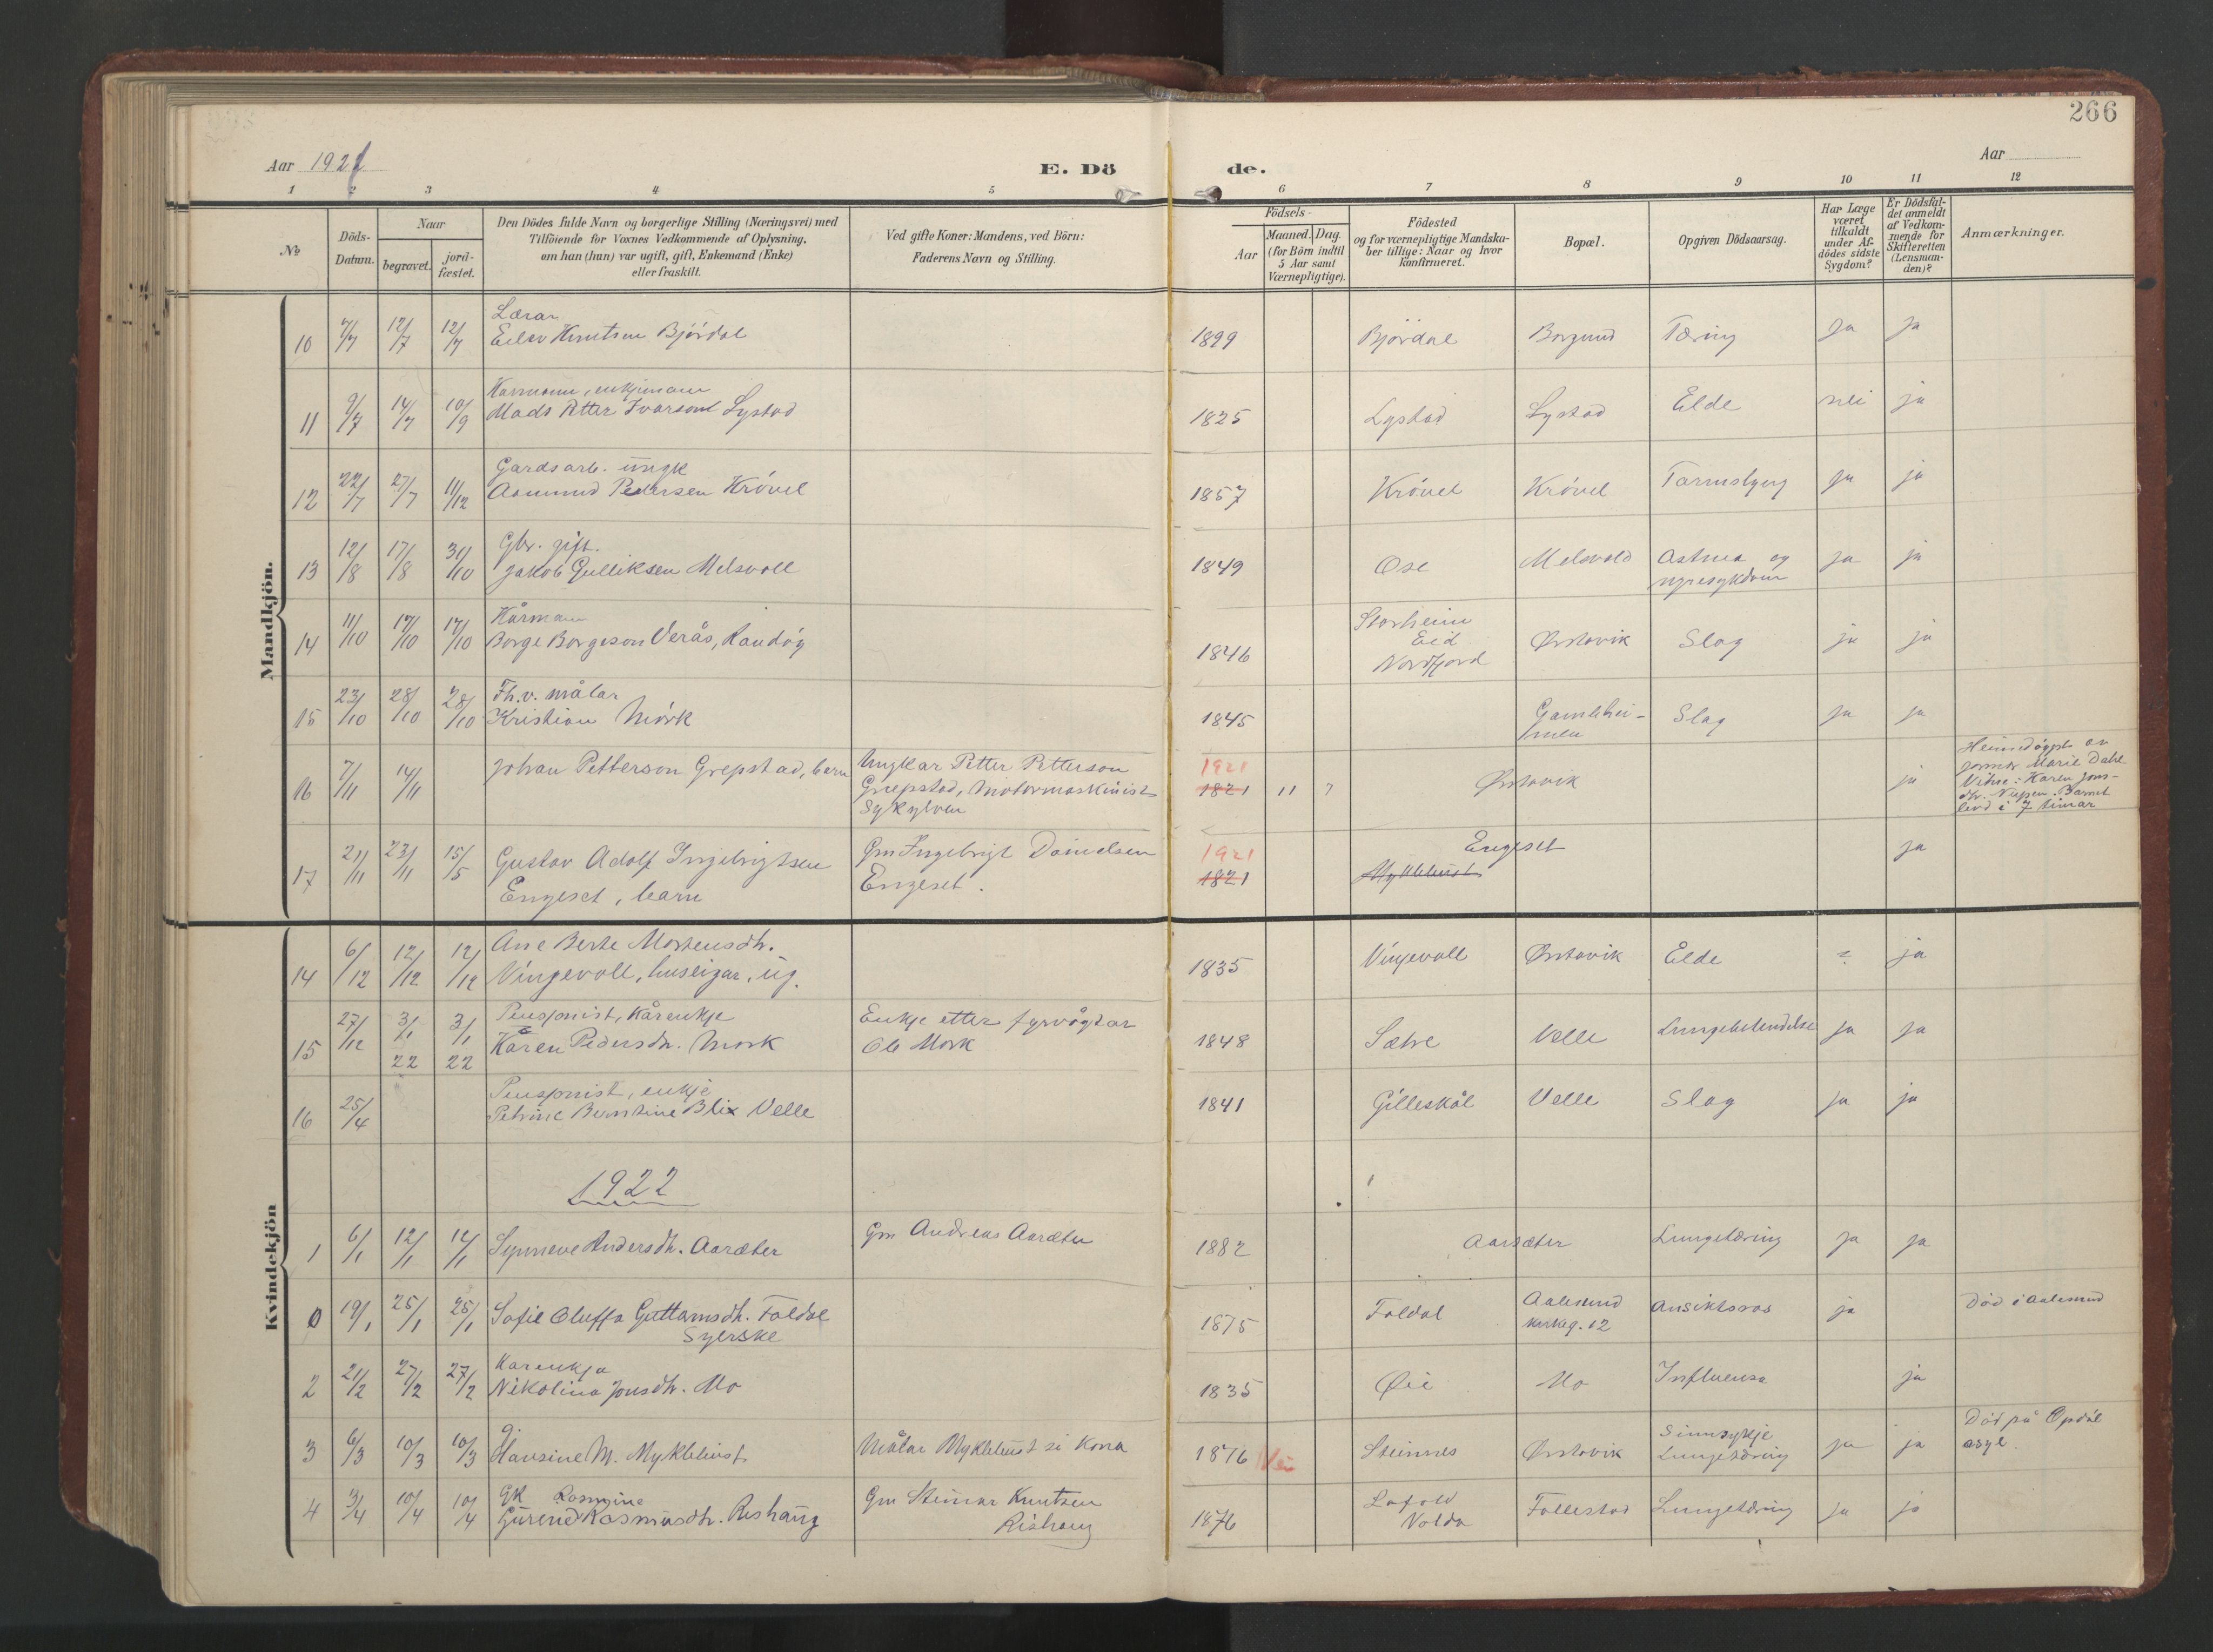 266
Aar 1921
E. Dö de.
Aar
1 2 3 4 5 6 7 8 9 10 11 12
№
Döds-Datum.
Naar
begravet.
jord-fæstet.
Den Dödes fulde Navn og borgerlige Stilling (Næringsvei) med
Tilföiende for Voxnes Vedkommende af Oplysning,
om han (hun) var ugift, gift, Enkemand (Enke)
eller fraskilt.
Ved gifte Koner: Mandens, ved Börn:
Faderens Navn og Stilling.
Födsels-
Aar
Maaned. Dag.
(for Börn indtil
5 Aar samt
Værnepligtige).
Födested
og for værnepligtige Mandska-
ber tillige: Naar og hvor
konfirmeret.
Bopæl.
Opgiven Dödsaarsag.
Har Læge
været
tilkaldt
under Af-
dödes sidste
Sygdom?
Er Dödsfal-
det anmeldt
af Vedkom-
mende for
Skifteretten
(Lensman-
den)?
Anmærkninger.
Mandkjön.
Lærar
10 7/7 12/7 12/7 Knutsen Bjørdal 1899 Bjørdal Borgund Tæring ja ja
Kårmann, enkjemann
11 9/7 14/7 10/9 Mads Petter Ivarson Lystad 1825 Lystad Lystad Elde nei ja
Gardsarb. ungk
12 22/7 27/7 11/12 Aamund Pedersen Krøvel 1857 Krøvel Krøvel Tarmslyng ja ja
Gbr. gift.
13 12/8 17/8 31/10 Jakob Gulliksen Melsvoll 1849 Ose Melsvold Astma og
nyresykdom ja ja
Kårmann
14 11/10 17/10 17/10 Borge Borgeson Verås, Raudøy 1846 Storheim
Eid
Nordfjord Ørstavik Slag ja ja
Fh.v. målar
15 23/10 28/10 28/10 Kristian Mörk 1845 Gamlehei-
men Slag ja ja
16 7/11 14/11 Johan Petterson Grepstad, barn Ungkar Petter Petterson
Grepstad, Motormaskinist
Sykylven 1921 1821 11 7 Ørstavik ja Heimedøypt av
jormor Marie Dahl
Vitne: Karen Jons-
dtr. Barnet
levd i 7 timar
17 21/11 23/11 15/5 Gustav Adolf Ingebrigtsen
Engeset, barn Gm Ingebrigt Danielsen
Engeset. 1921 1821 Engeset
Myklebust ja
Kvindekjön
14 6/12 12/12 12/12 Ane Berte Mortensdtr.
Vingevoll, huseigar, ug. 1835 Vingevoll Ørstavik Elde ? ja
Pensjonist, Kårenkje
15 27/12 3/1 22 3/1 22 Karen Pedersdtr. Mork Enkje etter fyrvågtar
Ole Mork 1848 Sætre Velle Lungebetendelse ja ja
Pensjonist, enkje
16 25/4 Petrine Berntine Blix Velle 1841 Gilleskål Velle Slag ja ja
1922
1 6/1 12/1 12/1 Synneve Andersdtr. Aarsæter Gm Andreas Aarsæter 1882 Aarsæter Lungetæring ja ja
0 19/1 25/1 25/1 Sofie Oluffa Guttormsdtr. Foldal
Syerske 1875 Foldal Aalesund
kirkeg. 12 Ansiktsros ja Död i Aalesund
Kårenkja
2 21/2 27/2 27/2 Nikolina Jonsdtr. Mo 1835 Øie Mo Influensa ja
g.
3 6/3 10/3 10/3 Hansine M. Myklebust Målar Myklebust si Kona 1876 Nei Steinnes Ørstavik Sinnsykje
Lungetæring ja ja Död på Opdøl
asyl.
GK Rasmine
4 3/4 10/4 10/4 Gurene Rasmusdtr. Rishaug Gm Steinar Knutsen
Rishaug 1876 Volda Follestad Lungetæring ja ja